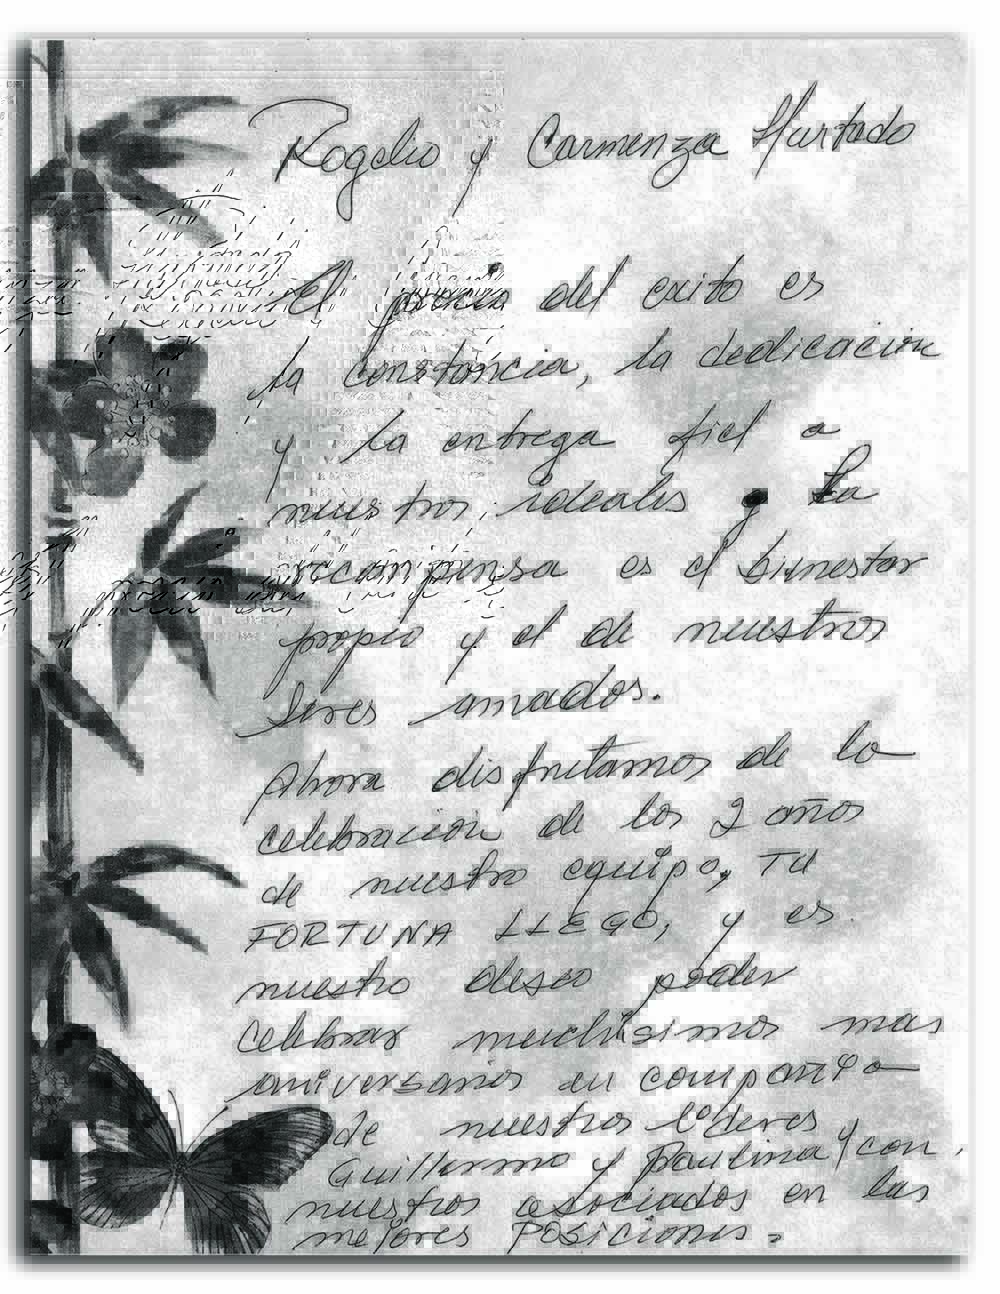 Rogelio y Carmenza Hurtado
El precio del exito es
la constancia, la dedicación
y la entrega fiel a
nuestros ideales y La
recompensa es el bienestar
propio y el de nuestros
Seres amados.
Ahora disfrutamos de la
celebración de los 2 años
de nuestro equipo, TU
FORTUNA LLEGO, y es
nuestro deseo poder
Celebrar muchisimos mas
aniversarios en compañia
de nuestros lideres
Guillermo y Paulina y con
nuestros asociados en las
mejores POSiciones.